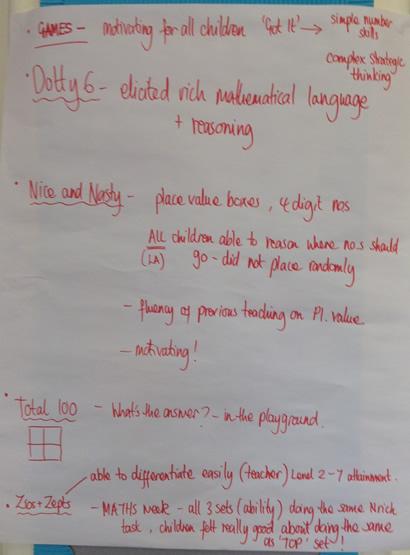 • GAMES - motivating for all children 'Got It' → simple number skills
complex strategic thinking
Dotty 6 - elicited rich mathematical language
+ reasoning
• Nice and Nasty - place value boxes, 4 digit nos
ALL children able to reason where no.s should
(LA) go - did not place randomly
- fluency of previous teaching on Pl. value
- motivating!
• Total 100 - What's the answer? - in the playground.
able to differentiate easily (teacher) Level 2-7 attainment.
• Zios + Zepts - MATHS Week - all 3 sets (ability) doing the same Nrich
task, children felt really good about doing the same
as 'TOP' set!